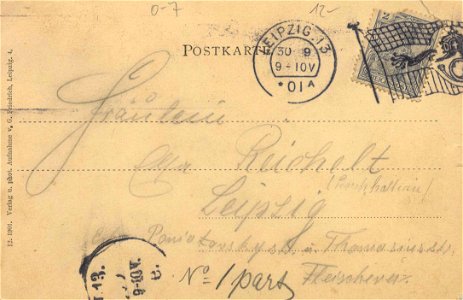 0-7 12-
POSTKARTE
LEIPZIG.13
30 9
9-10V
*01A
Fräulein
Reichelt
Leipzig
Poniatowskystr. u. Thomasiusstr.
No 1 part Fleischerei
13.
9-10V.
12. 1901. Verlag u. phot. Aufnahme v. G. Friedrich, Leipzig. 4.